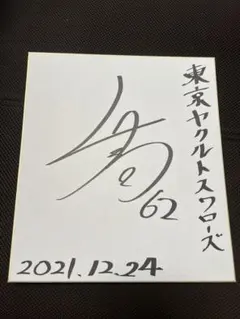 東京ヤクルトスワローズ
62
2021.12.24